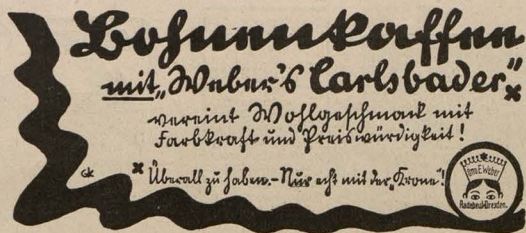 Bohnenkaffee
mit „Weber's Carlsbader“
vereint Wohlgeschmack mit
Farbkraft und Preiswürdigkeit!
* Überall zu haben. – Nur echt mit der „Krone“!
GK
Otto E. Weber
Radebeul-Dresden.